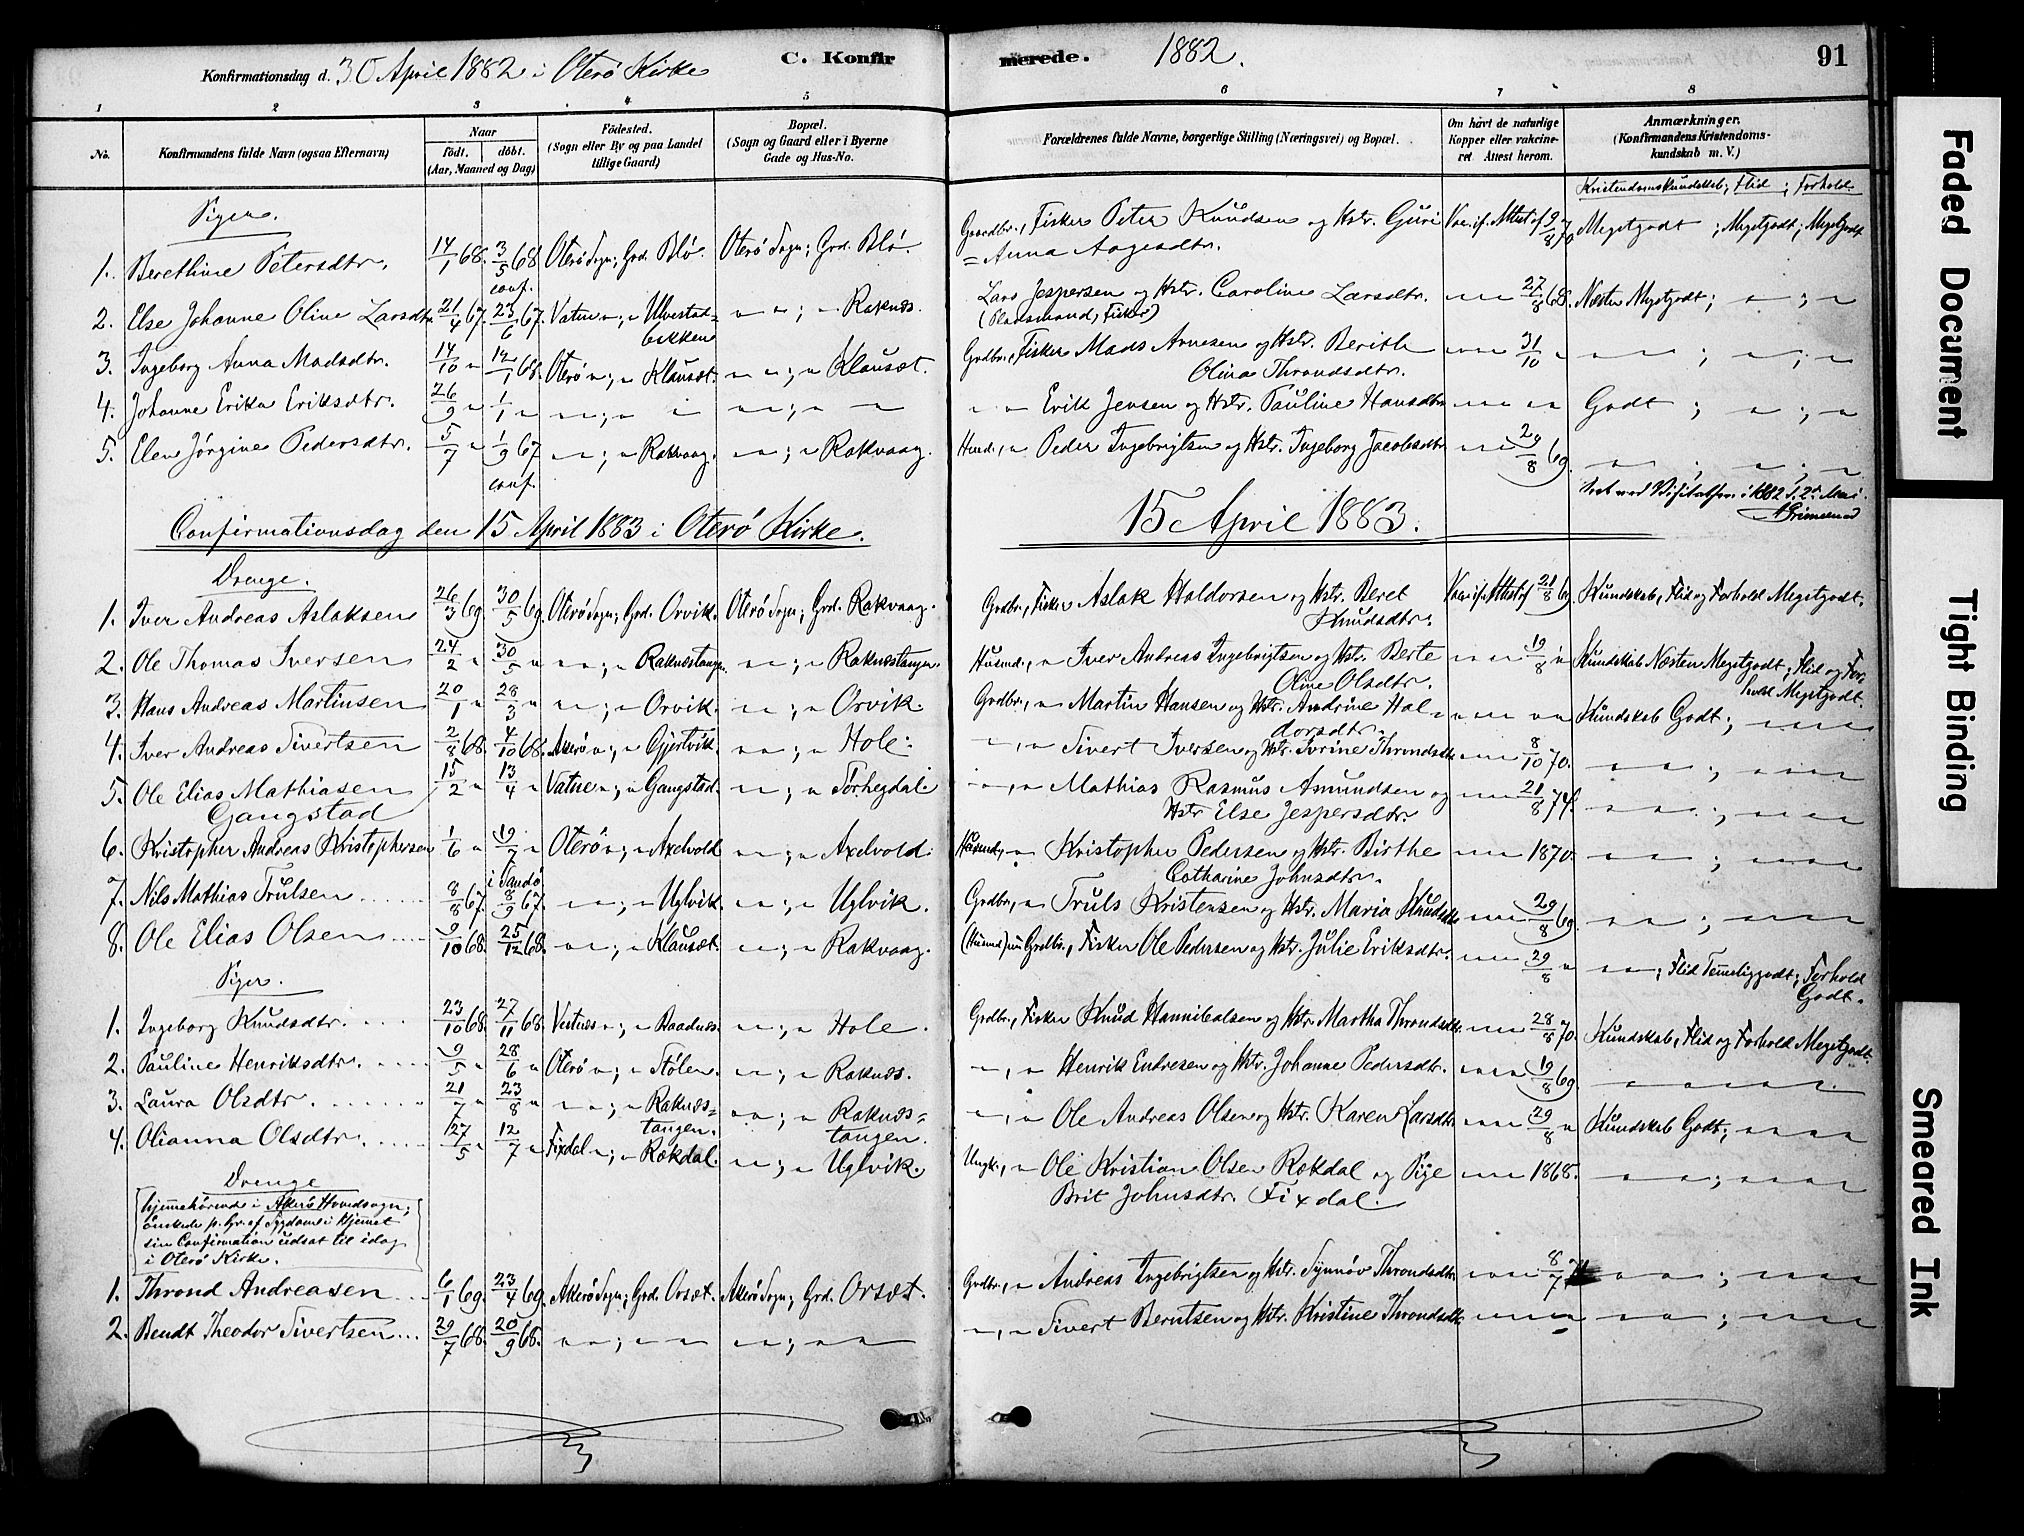 Konfirmationsdag d. 30 April 1882 i Oterö Kirke C. Konfirmerede. 1882. 91
1 2 3 4 5 6 7 8
No. Konfirmandens fulde Navn (ogsaa Efternavn) Naar födt. döbt. (Aar, Maaned og Dag) Födested. (Sogn eller By og paa Landet tillige Gaard) Bopæl. (Sogn og Gaard eller i Byerne Gade og Hus-No. Forældrenes fulde Navne, borgerlige Stilling (Næringsvei) og Bopæl. Om havt de naturlige Kopper eller vakcineret Attest herom. Anmærkninger. (Konfirmandens Kristendomskundskab m. V.)
Kristendomskundskab; Flid; Forhold.
Piger.
1. Berethine Petersdtr. 14/1 68. 3/5 68 conf. Oterö Sogn; Grd. Blö. Oterö Sogn; Grd. Blö. Gaardbr., Fisker Peter Knudsen og Hstr. Guri Vac. if. Attest af 9/8 70 Megetgodt; Megetgodt; Megetgodt
= Anna Aagesdtr.
2. Else Johanne Oline Larsdtr. 21/4 67. 23/6 67. Vatne "; " Ulvestad= " "; " Raknæs. Lars Jespersen og Hstr. Caroline Larsdtr. " " 27/8 68. Næsten Megetgodt; " ; "
bakken (Pladsmand, Fisker)
3. Ingeborg Anna Madsdtr. 14/10 " 12/1 68. Oterö "; " Klauset. " "; " Klauset. Grdbr., Fisker Mads Arnesen og Hstr. Berith " " 31/10 " " " ; " ; "
Olina Throndsdtr.
4. Johanne Erika Eriksdtr. 26/9 " 1/1 " " "; " " " "; " " " " Erik Jensen og Hstr. Pauline Hansdtr " " " " Godt ; " ; "
5. Elen Jörgine Pedersdtr. 5/7 " 1/9 67 conf. " "; " Rakvaag. " "; " Rakvaag. Husd., " Peder Ingebrigtsen og Hstr. Ingeborg Jacobsdtr " " 29/8 69. " " ; " ; "
1882 d. 2den Mai.
Confirmationsdag den 15 April 1883 i Oterö Kirke. 15 April 1883.
Drenge.
1. Iver Andreas Aslaksen 26/3 69. 30/5 69. Oterö Sogn; Grd. Orvik. Oterö Sogn; Grd. Rakvaag. Grdbr., Fisker Aslak Haldorsen og Hstr. Beret Vac. if. Attest af 21/8 69. Kundskab, Flid og Forhold Megetgodt.
Knudsdtr.
2. Ole Thomas Iversen 24/2 " 30/5 " " "; " Raknæstangen. " "; " Raknæstangen. Husmd., " Iver Andreas Ingebrigtsen og Hstr. Berte " " 19/8 " Kundskab Næsten Megetgodt; Flid og For-
Oline Olsdtr. hold Megetgodt.
3. Hans Andreas Martinsen 20/1 " 28/3 " " "; " Orvik. " "; " Orvik. Grdbr., " Martin Hansen og Hstr. Andrine Hal= " " " " Kundskab Godt; " " "
dorsdtr.
4. Iver Andreas Sivertsen 2/8 68. 4/10 68. Akerö "; " Gjertvik. " "; " Hole. " , " Sivert Iversen og Hstr. Ivrine Throndsdtr " " 8/10 70. " " ; " " "
5. Ole Elias Mathiasen 15/2 " 13/4 " Vatne "; " Gangstad. " "; " Torhegdal. " , " Mathias Rasmus Asmundsen og " " 21/8 74. " " ; " " "
Gangstad Hstr Else Jespersdtr.
6. Kristopher Andreas Kristophersen 1/6 " 19/7 " Oterö "; " Axelvold " "; " Axelvold. Husmd, " Kristopher Pedersen og Hstr. Birthe " " 1870. " " ; " " "
i Sandö Catharine Johnsdtr.
7. Nils Mathias Trulsen 8/8 67. 8/9 67. " "; " Uglvik. " "; " Uglvik. Grdbr., " Truls Kristensen og Hstr. Maria Knudsdtr " " 29/8 69. " " ; " " "
8. Ole Elias Olsen 9/10 68. 25/12 68. " "; " Klauset. " "; " Rakvaag. (Husmd) nu Grdbr., Fisker Ole Pedersen og Hstr. Julie Eriksdtr. " " 29/8 " " " ; Flid Temmeliggodt; Forhold
Godt.
Piger.
1. Ingeborg Knudsdtr. 23/10 68. 27/11 68. Vestnæs "; " Raadnæs. " "; " Hole. Grdbr., Fisker Knud Hannibalsen og Hstr. Martha Throndsdtr. " " 28/8 70. Kundskab, Flid og Forhold Megetgodt.
2. Pauline Henriksdtr. 9/5 " 28/6 " Oterö "; " Stölen. " "; " Raknæs. " , " Henrik Endresen og Hstr. Johanne Pedersdtr. " " 19/8 69. " " " "
3. Laura Olsdtr. 21/7 " 23/8 " " "; " Raknæs= " "; " Raknæs= " , " Ole Andreas Olsen og Hstr. Karen Larsdtr " " 29/8 " Kundskab Godt; " " "
tangen. tangen.
4. Olianna Olsdtr. 27/5 " 12/7 " Fixdal "; " Rekdal. " "; " Uglvik. Ungk., " Ole Kristian Olsen Rekdal og Pige " " 1868. " " ; " " "
Brit Johnsdtr. Fixdal.
Drenge
hjemmehörende i Akerö Hovedsogn;
önskede p. Gr. af Sygdom i Hjemmet
sin Confirmation udsat til idag
i Oterö Kirke.
1. Thrond Andreasen 6/1 69. 23/4 69. Akerö Sogn; Grd. Orset. Akerö Sogn; Grd. Orset. Grdbr., " Andreas Ingebrigtsen og Hstr. Synnöv Throndsdtr. " " 8/7 " " ; " " "
2. Bendt Theodor Sivertsen 29/7 68. 20/9 68. " "; " " " "; " " " , " Sivert Berntsen og Hstr. Kristine Throndsdtr " " " " " ; " " "
Faded Document
Tight Binding
Smeared Ink